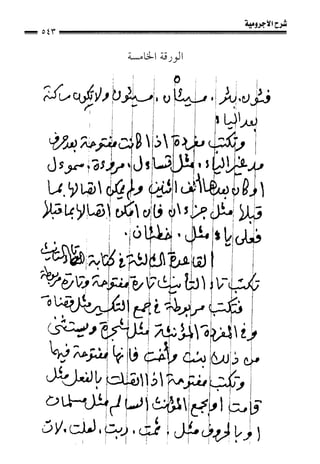 شرح الآجرومية
٥٤٣
الورقة الخامسة
٥
فئتون، بئر، مسيئان، مسيئون ولا تكون ساكنة
بعد الياء
وتكتب مفردة إذا كانت مفتوحة بعد حرف
مد غير الياء، مثل تساءل، مروءة، سموءل
أو كان بعدها ألف اثنين ولم يمكن اتصالها بما
قبلها مثل جزءان فإن أمكن اتصالها بما قبلها
فعلى ياء مثل، خطئان.
القاعدة الثالثة في كتابة تاء التأنيث
تكتب تاء التأنيث تارة مفتوحة وتارة مربوطة
فتكتب مربوطة في جمع التكسير مثل قضاة
وفي المفردة المؤنثة مثل شجرة ويستثنى
من ذلك بنت وأخت فإنها مفتوحة فيها
وتكتب مفتوحة إذا اتصلت بالفعل مثل
قامت أو بجمع المؤنث السالم مثل مسلمات
أو بالحروف مثل، ثمت، ربت، لعلت، لات